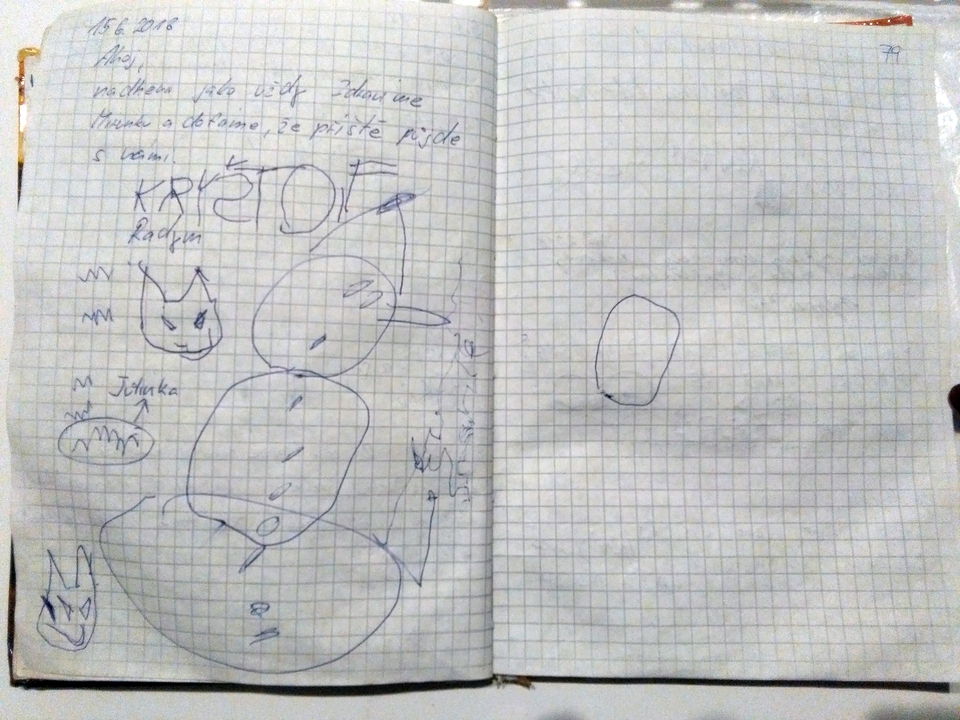 15.6.2016
Ahoj,
nádhera jako vždy. Zdravíme
a doufáme, že příště půjde
s vámi.
KRYŠTOF
Radym
Jitinka
79